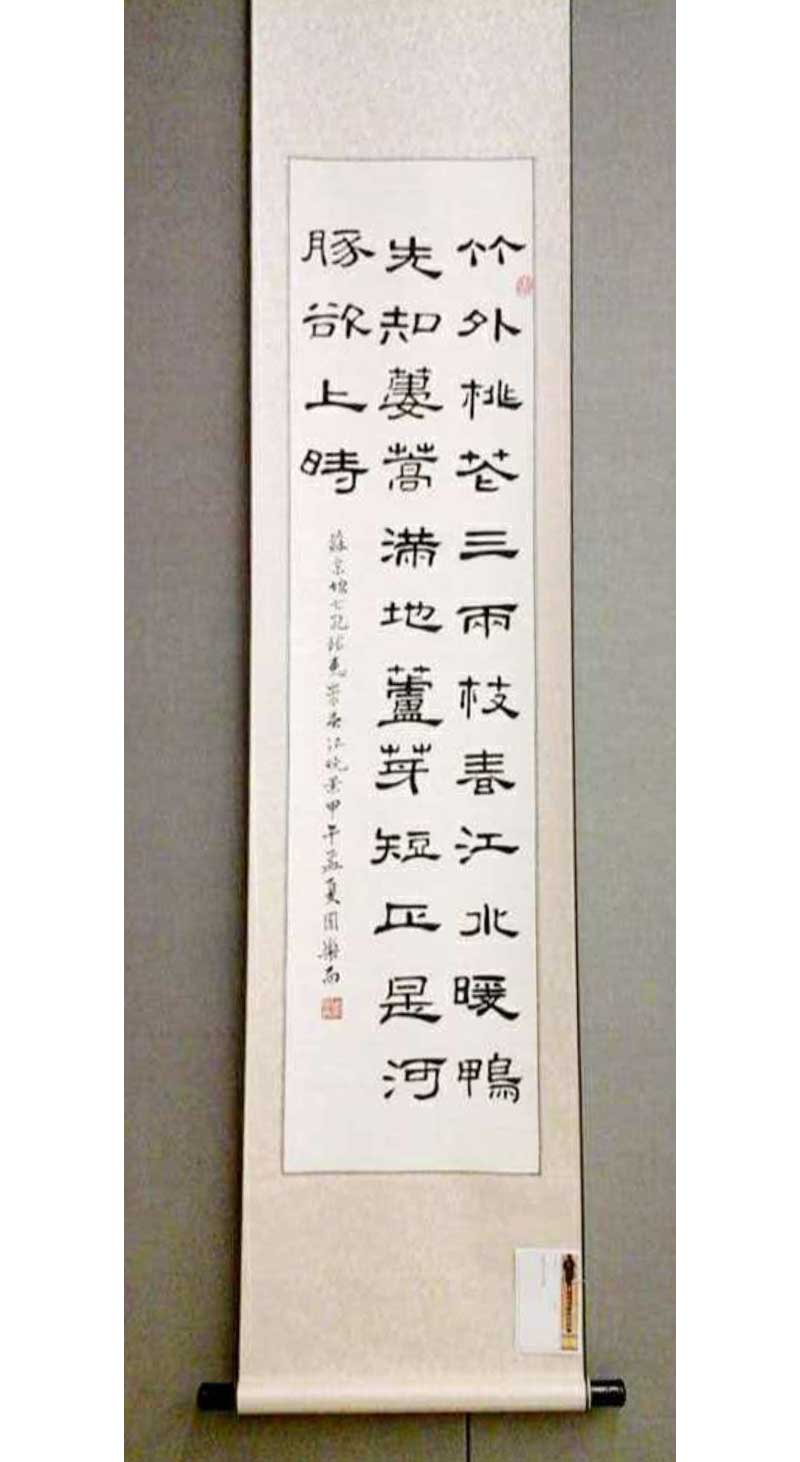 竹外桃花三兩枝春江水暖鴨
先知蔞蒿滿地蘆芽短正是河
豚欲上時
蘇東坡七絕惠崇春江晚景甲午孟夏